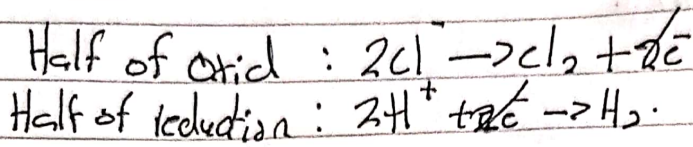 Half of oxid : 2Cl⁻ → Cl₂ + 2e⁻
Half of reduction : 2H⁺ + 2e⁻ → H₂.